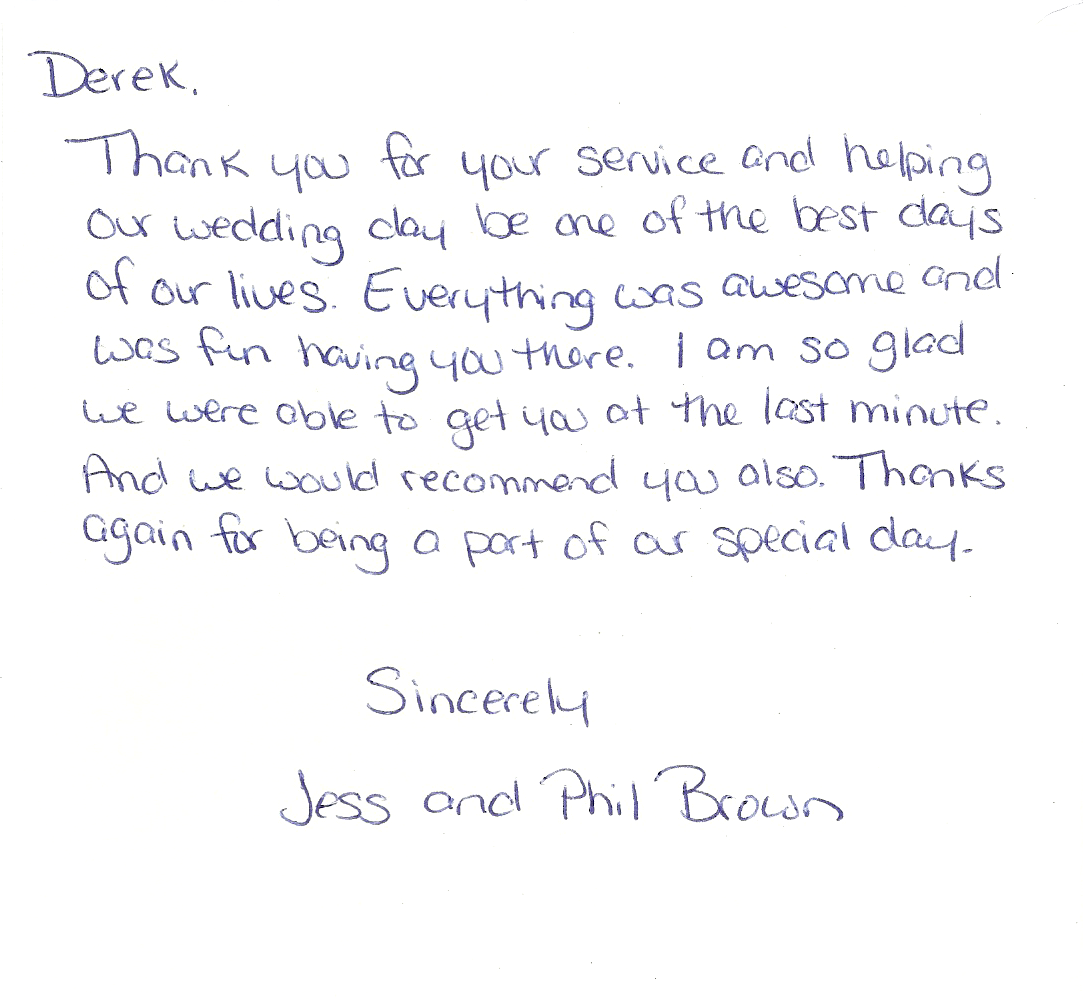 Derek,
Thank you for your service and helping
our wedding day be one of the best days
of our lives. Everything was awesome and
was fun having you there. I am so glad
we were able to get you at the last minute.
And we would recommend you also. Thanks
again for being a part of our special day.
Sincerely
Jess and Phil Brown